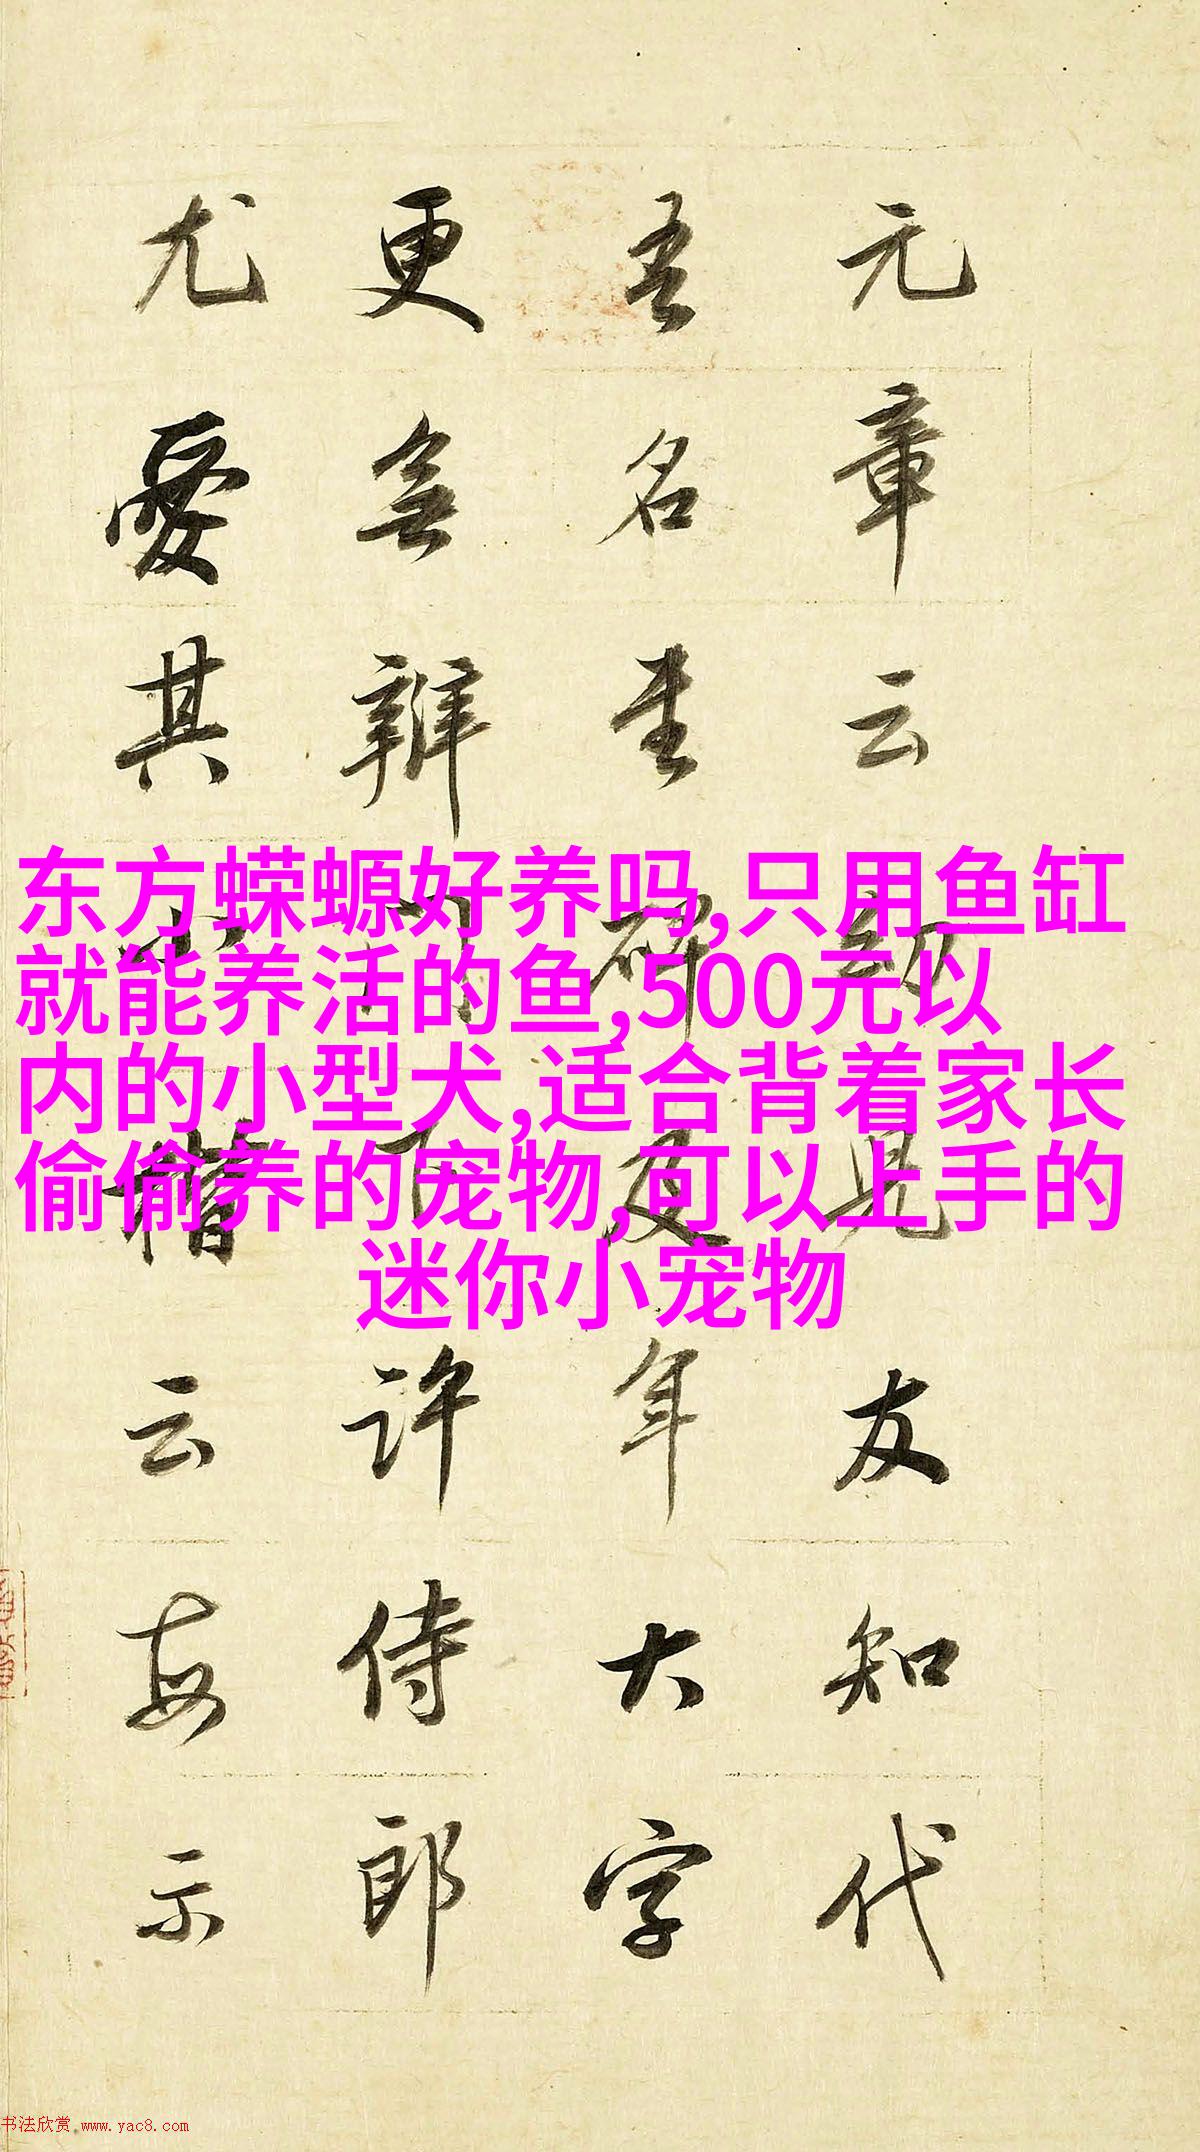 东方蝾螈好养吗,只用鱼缸
就能养活的鱼,500元以
内的小型犬,适合背着家长
偷偷养的宠物,可以上手的
迷你小宠物
元章云幼兒友知代
吾名書碑及手大字
更無辨門下許侍郎
尤愛其小楷云每示
书法欣赏.www.yac8.com